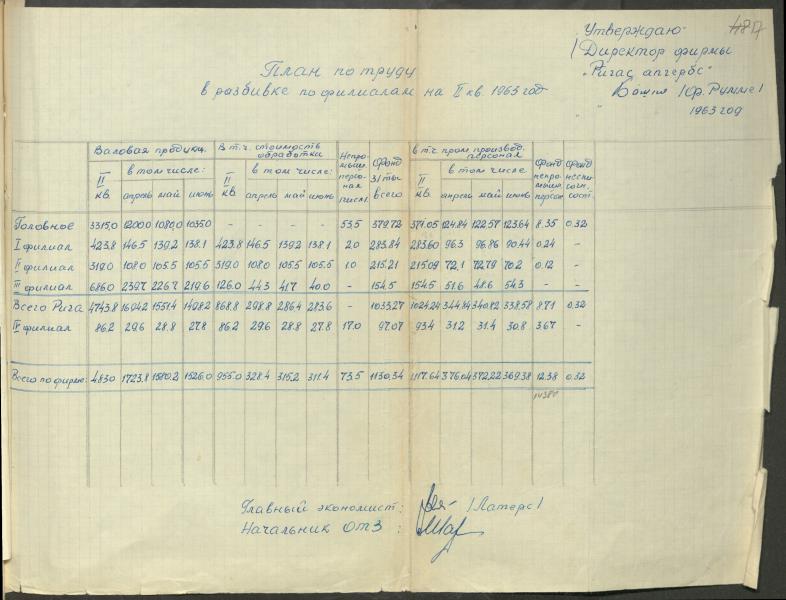 Утверждаю
/ Директор фирмы
"Ригас апгербс"
1963 год
План по труду
в разбивке по филиалам на II кв. 1963 год
Валовая продукц. В т.ч. стоимость обработки Непромышл. персонал числ. Фонд з/ты всего в т.ч. пром. производ. персонал Фонд непромышл. персон. Фонд несписочн. сост.
II кв. в том числе: II кв. в том числе: II кв. в том числе
апрель май июнь апрель май июнь апрель май июнь
Головное 3315,0 1200,0 1080,0 1035,0 - - - - 53,5 379,72 371,05 124,84 122,57 123,64 8.35 0.32
I филиал 423.8 146.5 139.2 138.1 423.8 146.5 139.2 138.1 2.0 283.84 283.60 96.3 96.86 90.44 0.24 -
II филиал 319.0 108.0 105.5 105.5 319.0 108.0 105.5 105.5 1.0 215.21 215.09 72.1 72.79 70.2 0.12 -
III филиал 686.0 239.7 226.7 219.6 126.0 44.3 41.7 40.0 - 154.5 154.5 51.6 48.6 54.3 - -
Всего Рига 4743.8 1694.2 1551.4 1498.2 868.8 298.8 286.4 283.6 - 1033.27 1024.24 344.84 340.82 338.58 8.71 0.32
IV филиал 86.2 29.6 28.8 27.8 86.2 29.6 28.8 27.8 17.0 97.07 93.4 31.2 31.4 30.8 3.67 -
Всего по фирме: 4830 1723.8 1580.2 1526.0 955.0 328.4 315.2 311.4 73.5 1130.34 1117.64 376.04 372.22 369.38 12.38 0.32
Главный экономист: /Латерс/
Начальник ОТЗ :